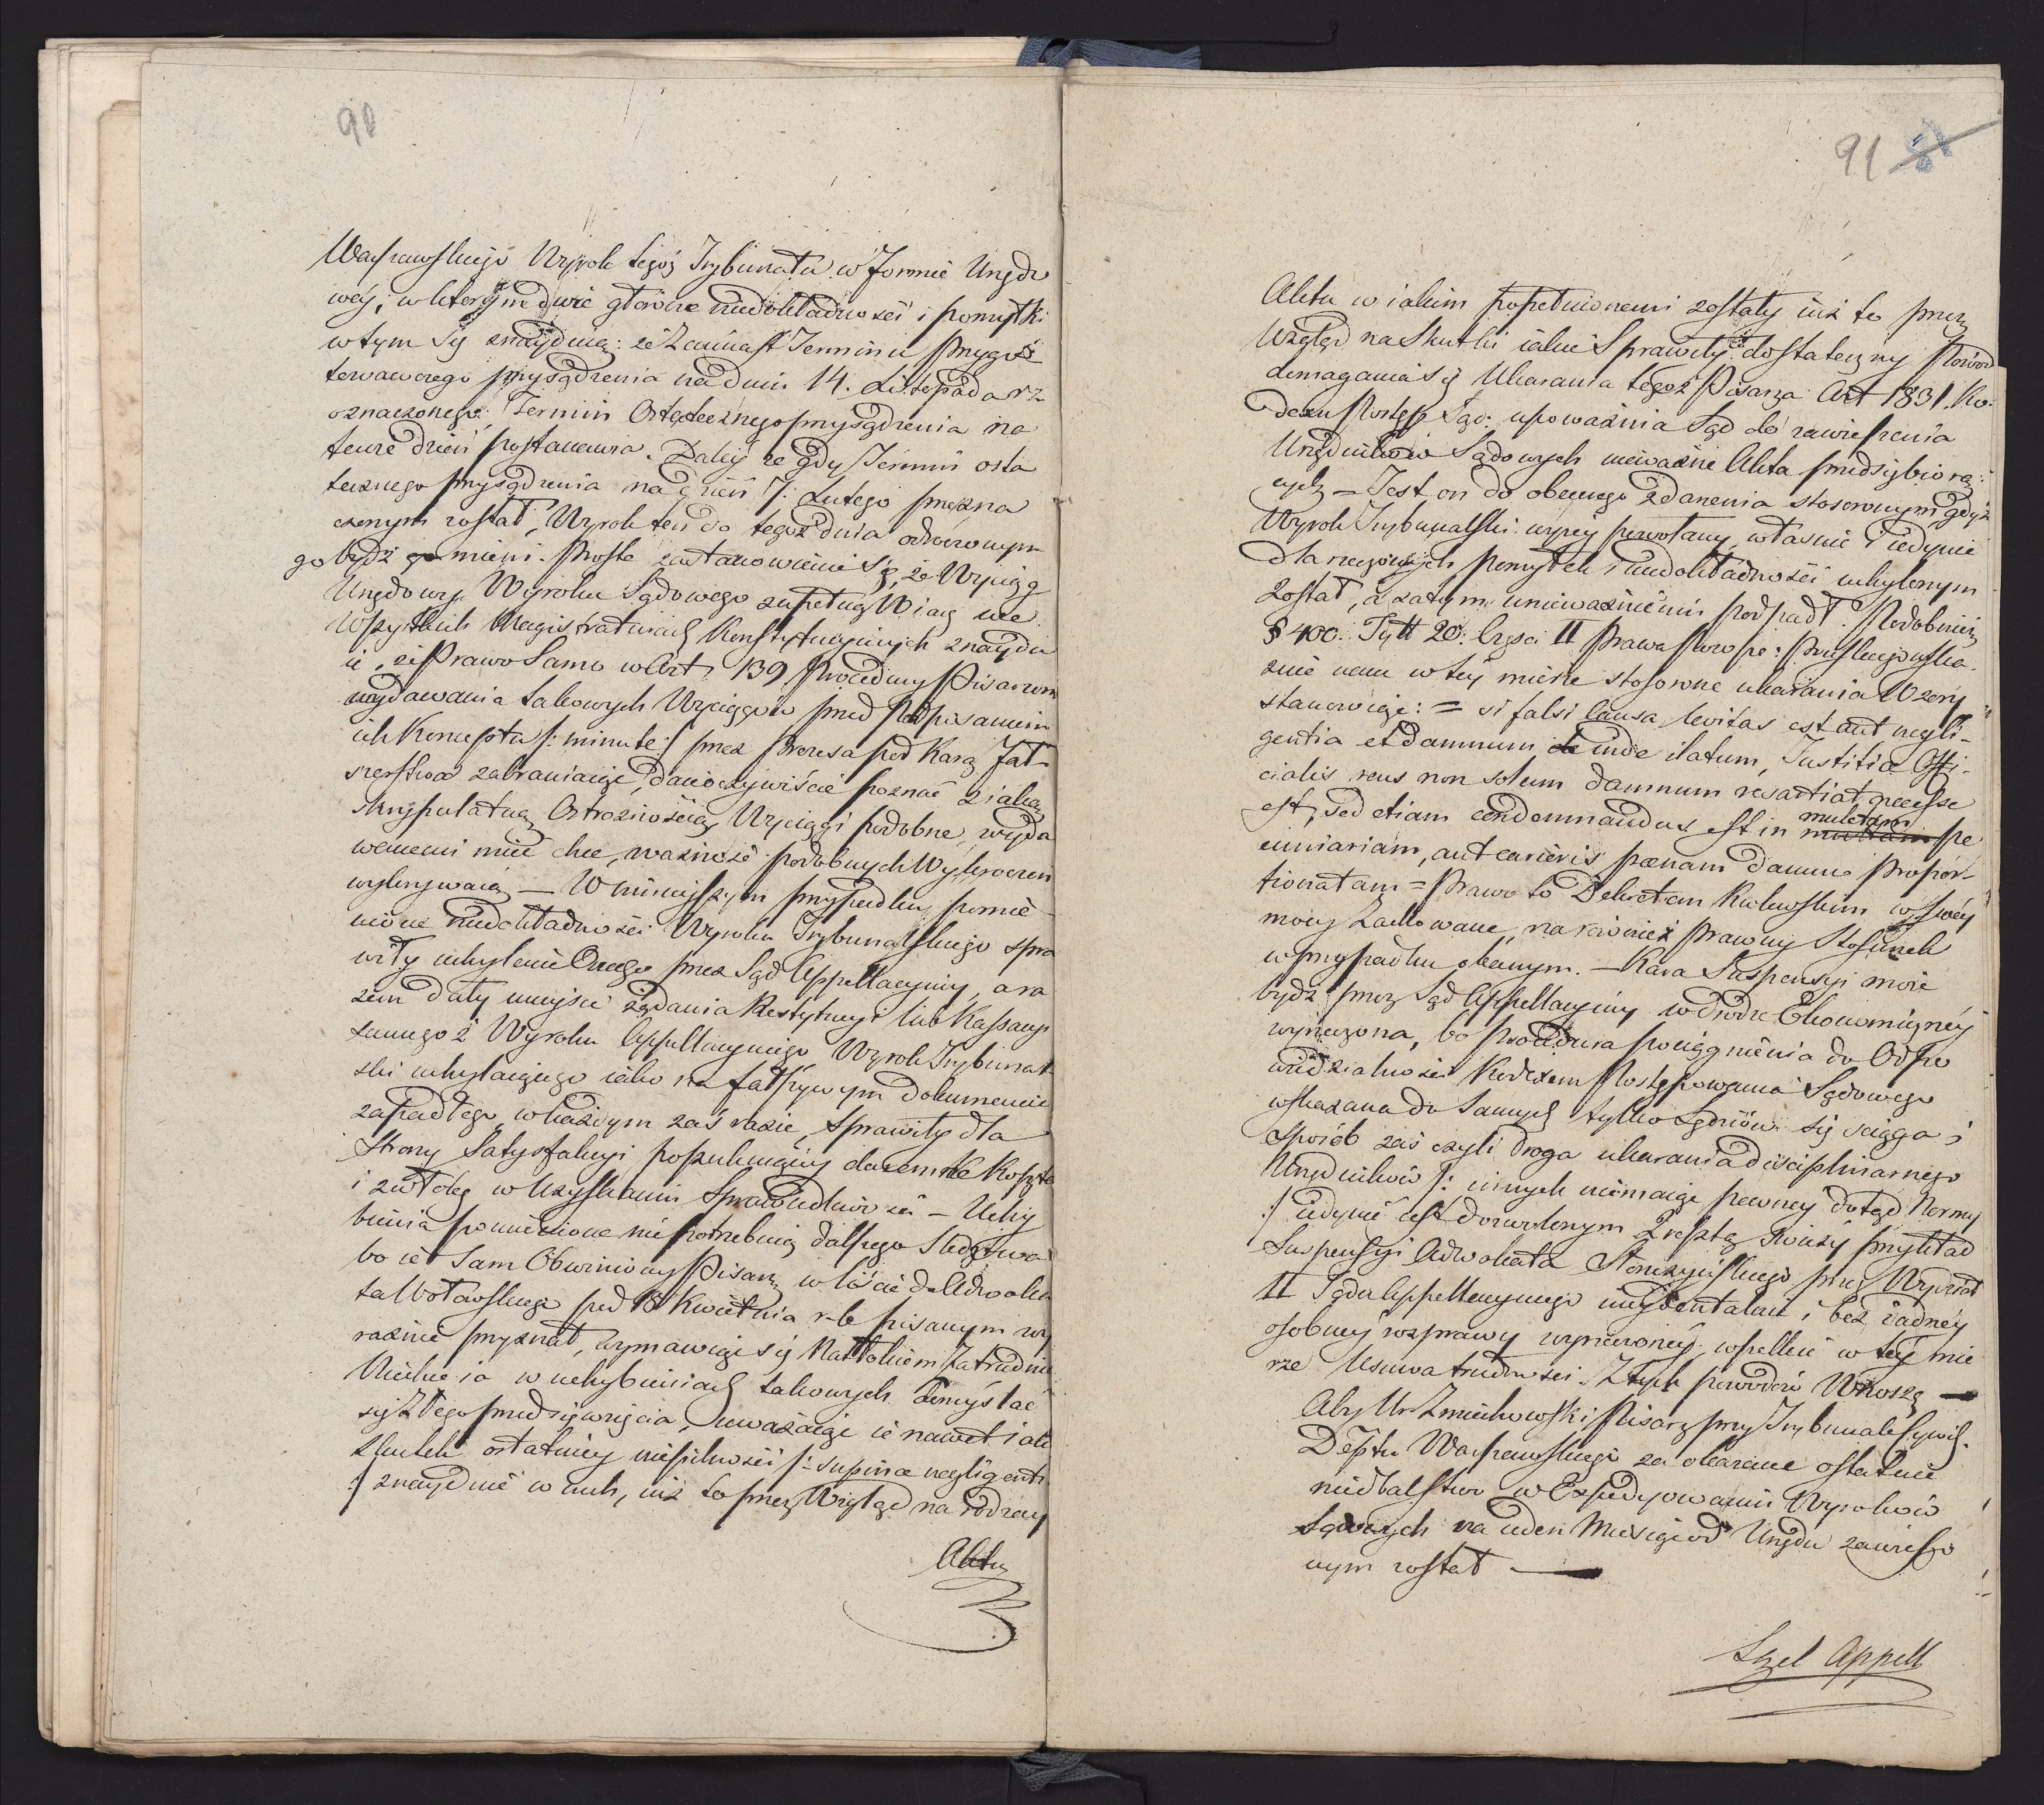 90
Warszawskiego Wyrok tegoż Trybunału w Formie Urzędo
wéy, w którym dwie główne niedokładności i pomyłki
w tym się znayduią: że zamiast Terminu przygo
towawczego przysądzenia na dzień 14. Listopada r z
oznaczonego Termin Ostatecznego przysądzenia na
tenże dzień postanowia. Daléy że gdy Termin osta
tecznego przysądzenia na dzień 7. Lutego przezna
czonym został, Wyrok ten do tegoż dnia odroczonym
go bydź go mieni. Proste zastanowienie się, że Wyciąg
Urzędowy Wyroku Sądowego zupełną Wiarę we
wszystkich Magistraturach Konstytucyinych znaydu
ie, że Prawo samo w Art. 139 Procedury Pisarzom
wydawania takowych Wyciągów przed podpisaniem
ich Konceptu /: minute :/ przez Prezesa pod Karą Fał-
szerstwa zabraniaiąc, daie oczywiście poznać z iaką
skrypulatną Ostrożnością Wyciągi podobne wyda
wanemi mieć chce, ważność podobnych Wykroczeń
wykrywaią — W ninieyszym przypadku pomie
nione niedokładności Wyroku Trybunalskiego spra
wiły uchylenie Onego przez Sąd Appellacyiny, a ra
zem dały mieysce żądania Restytucyi lub Kassacyi
samegoż Wyroku Appellacyinego Wyrok Trybunal
ski uchylaiącego iako na fałszywym dokumencie
zapadłego, w każdym zaś razie, sprawiły dla
Strony Satysfakcyi poszukuiącey daremne Koszta
i zwłokę w uzyskaniu Sprawiedliwości — Uchy
bienia pomienione nie potrzebuią dalszego Śledztwa
bo ie sam Obwiniony Pisarz w liście do Adwoka
ta Wołowskiego pod 18 Kwietnia r b pisanym wy
raźnie przyznał, wymawiaiąc się Natłokiem Zatrudnie
Niechcę ia w uchybieniach takowych domyślać
się Złego przedsięwzięcia, uważaiąc ie nawet iako
skutek ostatniéy niepilności /: supina negligenti
:/ znayduie w nich, iuż to przez Wzgląd na rodzay
Aktu
91
Aktu w iakim popełnionemi zostały iuż to przez
Wzgląd na Skutki iakie sprawiły dostateczny Powód
domagania się Ukarania tegoż Pisarza Art 1831. Ko
dexu Postęp. Sąd. upoważnia Sąd do zawieszenia
Urzędników Sądowych nieważne Akta przedsiębiorą:
cych — Jest on do obecnego zdarzenia stosownym, gdyż
Wyrok Trybunalski wyżey powołany, właśnie i iedynie
dla rzeczonych pomyłek i niedokładności uchylonym
został, a zatym unieważnieniu podpadł. Podobnież
§ 400. Tytt 20. Części II Prawa Powsze: Pruskiego wska
zuie nam w téy mierze stosowne ukarania Wzory
stanowiąc: = si falsi causa levitas est aut negli-
gentia et damnum de inde ilatum, Justitiæ Offi-
cialis reus non solum damnum resartiat necesse
est, sed etiam condemnandus est in multam mulctam pe
cuniariam, aut carieris pœnam damno propor-
tionatam = Prawo to Dekretem Królewskim w swéy
mocy Zachowane, ma również prawny Stosunek
w przypadku obecnym. — Kara Suspensyi może
bydź przez Sąd Appellacyiny w drodze Ekonomicznéy
wyrzeczona, bo procedura pociągnienia do Odpo
wiedzialności Kodexem Postępowania Sądowego
wskazana do samych tylko Sędziów się ściąga i
sposób zaś czyli droga ukarania disciplinarnego
Urzędników /: innych niemaiąc pewney dotąd Normy
:/ iedynie iest dozwolonym Zresztą świeży przykład
Suspensyi Adwokata Słonczyńskiego przez Wydział
II Sądu Appellacyinego incydentalnie i bez żadnéy
osobnéy rozprawy wyrzeczonéy wszelkie w téy mie
rze Usuwa trudności. Z tych powodów Wnoszę —
Aby Ur Zmichowski Pisarz przy Trybunale Cywil.
Deptu Warszawskiego za okazane ostatnie
niedbalstwo w Expedyowaniu Wyroków
Sądowych na ieden Miesiąc od Urzędu zawieszo
nym został —
Appell